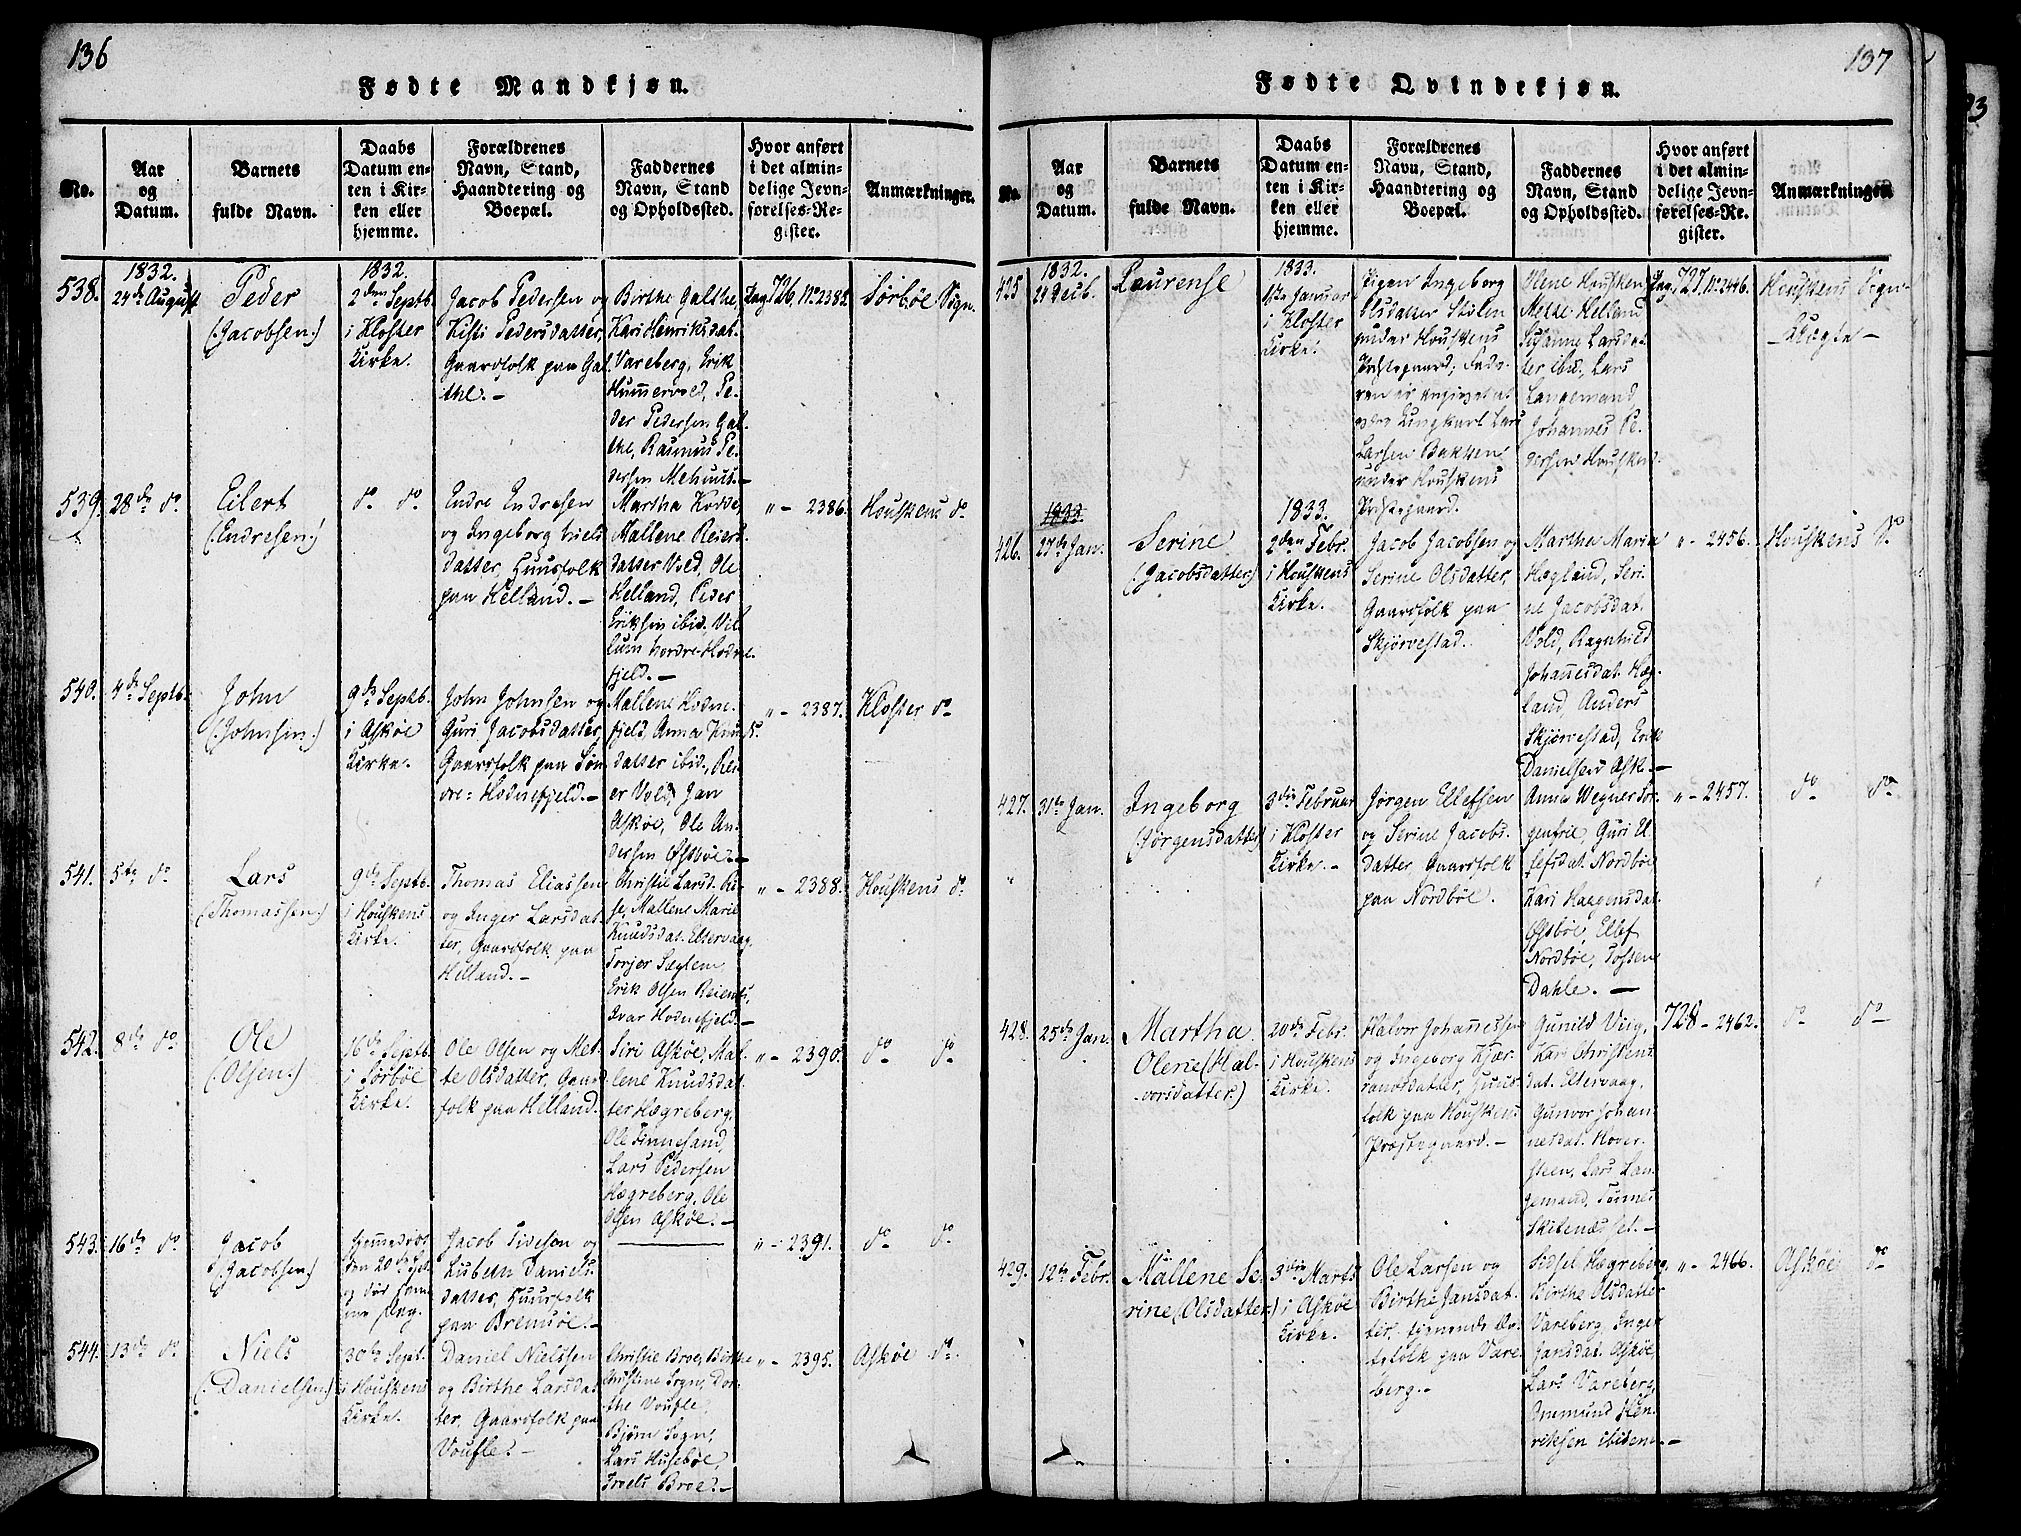 136
Fødte Mandkjøn.
No.
Aar
og
Datum.
Barnets
fulde Navn.
Daabs
Datum en-
ten i Kir-
ken eller
hjemme.
Forældrenes
Navn, Stand,
Haandtering og
Boepæl.
Faddernes
Navn, Stand
og Opholdssted.
Hvor anført
i det almin-
delige Jevn-
førelses-Re-
gister.
Anmærkninger.
538.
1832.
24de August
Peder
(Jacobsen)
1832.
2den Septb.
i Kloster
Kirke.
Jacob Pedersen og
Kisti Pedersdatter,
Gaardfolk paa Gal-
the.-
Birthe Galthe,
Kari Henriksdat.
Vareberg, Erik
Hummervold, Pe-
der Pedersen Gal-
the, Rasmus Pe-
dersen Mehuus.-
Pag. 726. No 2382.
Sørbøe Sogn.
539.
28de do
Eilert
(Endresen)
do do
Endre Endresen
og Ingeborg Niels-
datter, Huusfolk
paa Helland.-
Martha Todne,
Mallene Reiers-
datter Vold, Ole
Helland, Peder
Eriksen ibid. Vil-
lum nordre Hodne-
fjeld.-
" - 2386.
Houskens do
540.
4de Septb.
John
(Johnsen)
9de Septb.
i Askøe
Kirke.
John Johnsen og
Guri Jacobsdatter,
Gaardfolk paa Søn-
dre-Hodnefjeld.-
Mallene Hodne-
fjeld, Anna Knuds-
datter ibid., Rei-
er Vold, Jan
Askøe, Ole An-
dersen Østbøe.-
" - 2387.
Kloster do
541.
5te do
Lars
(Thomassen)
9de Septb.
i Houskens
Kirke.
Thomas Eliassen
og Inger Larsdat-
ter, Gaardfolk paa
Helland.-
Christie Larsd. Rei-
se, Mallene Marie
Knudsdat. Eltervaag,
Torjer Saglem,
Erik Olsen Reients,
Ivar Hodnefjeld.-
" - 2388.
Houskens do
542.
8de do
Ole
(Olsen)
16de Septb.
i Sørbøe
Kirke.
Ole Olsen og Met-
te Olsdatter, Gaard-
folk paa Helland.
Siri Askøe, Mal-
lene Knudsdat-
ter Hægreberg,
Ole Finnesand,
Lars Pedersen
Hægreberg, Ole
Olsen Askøe.-
" - 2390.
do do
543.
16de do
Jacob
(Jacobsen)
hjemmedøbt
den 20de Sept.
og død samme
Dag.
Jacob Sivesen og
Lisbeth Daniels-
datter, Huusfolk
paa Bremsøe.-
" - 2391.
do do
544.
13de do
Niels
(Danielsen)
30te Sept.
i Houskens
Kirke.
Daniel Nielssen
og Birthe Larsdat-
ter, Gaardfolk paa
Voufle.-
Christie Broe, Birthe
Christine Sogn, Dor-
the Voufle,
Bjørn Sogn,
Lars Husebøe,
Troels Broe.-
" - 2395.
Askøe do.
137
Fødte Qvindekjøn.
No.
Aar
og
Datum.
Barnets
fulde Navn.
Daabs
Datum en-
ten i Kir-
ken eller
hjemme.
Forældrenes
Navn, Stand,
Haandtering og
Boepæl.
Faddernes
Navn, Stand
og Opholdssted.
Hvor anført
i det almin-
delige Jevn-
førelses-Re-
gister.
Anmærkninger.
425
1832.
29 Decb.
Laurense
1833.
1ste Januar
i Kloster
Kirke.
Pigen Ingeborg
Olsdatter Stolen
under Houskens
Præstegaard; Fade-
ren er angivet at
være Ungkarl Lars
Larsen Bakken
under Houskens
Præstegaard.
Olene Housken
Mette Helland
Susanne Larsdat-
ter ibid., Lars
Langemand
Johannes Pe-
dersen Housken.
Pag. 727. No 2446.
Houskens Sogn-
Uægte-
426.
1833.
27de Jan.
Serine
(Jacobsdatter)
1833.
2den Febr.
i Houskens
Kirke.
Jacob Jacobsen og
Serine Olsdatter,
Gaardfolk paa
Skjørvestad.
Martha Marie
Hægland, Seri-
ne Jacobsdat.
Vold, Ragnhild
Johannesdat. Hæg-
land, Anders
Skjørvestad, Erik
Danielsen Ask.-
" - 2456.
Houskens do
427.
31te Jan.
Ingeborg
(Jørgensdatter)
3die Februar
i Kloster
Kirke.-
Jørgen Ellefsen
og Serine Jacobs-
datter, Gaardfolk
paa Nordbøe.
Anna Wegner Sor-
genfrie, Guri El-
lefsdat. Nordbøe
Kari Haggensdat.
Østbøe, Ellef
Nordbøe, Tosten
Dahle.-
" - 2457.
do do
428.
25de Jan.
Martha
Olene (Hal-
vorsdatter)
20de Febr.
i Houskens
Kirke.
Halvor Johannessen
og Ingeborg Kjær-
randsdatter, Huus-
folk paa Houskens
Præstegaard.-
Gunild Viig,
Kari Christens-
dat. Eltervaag,
Gunvor Johan-
nesdat. Hover-
steen, Lars Lan-
gemand, Tønnes
Skibenæsset.-
728 - 2462.
do do
429.
12te Febr.
Mallene Se-
rine (Olsdatter)
3die Marts
i Askøe
Kirke.
Ole Larsen og
Birthe Jansdat-
ter, tjenende Æg-
tefolk paa Vare-
berg.-
Sidsel Hægreberg,
Birthe Olsdatter
Vareberg, Inger
Jansdat. Askøe,
Lars Vareberg,
Omund Hen-
riksen ibidem.-
" - 2466.
Askøe do